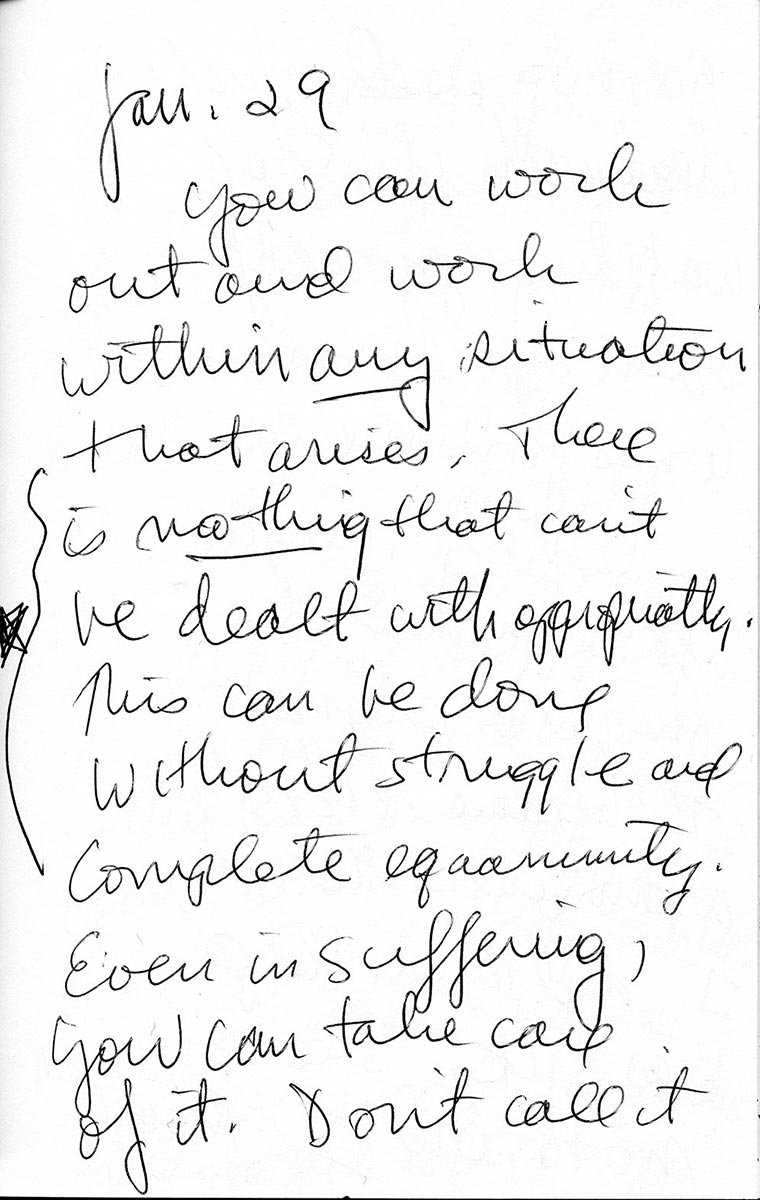 Jan. 29
You can work
out and work
within any situation
that arises. There
is nothing that can't
be dealt with appropriately.
This can be done
without struggle and
complete equanimity.
Even in suffering,
you can take care
of it. Don't call it